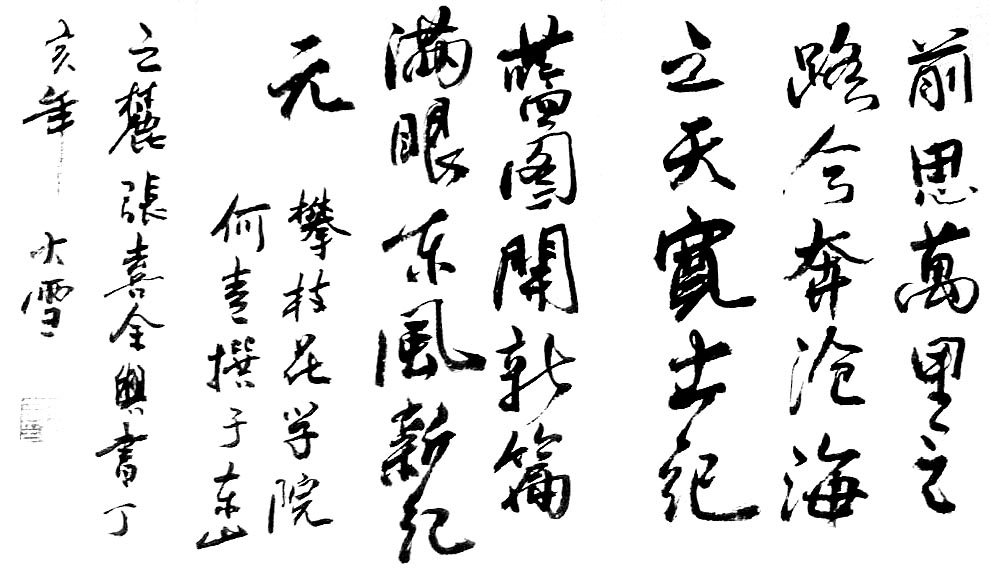 前思萬里之
路今奔沧海
之天實世纪
藍图開新篇
滿眼东風新纪
元
攀枝花学院
何青撰于东山
之麓張喜全興書丁
亥年 大雪